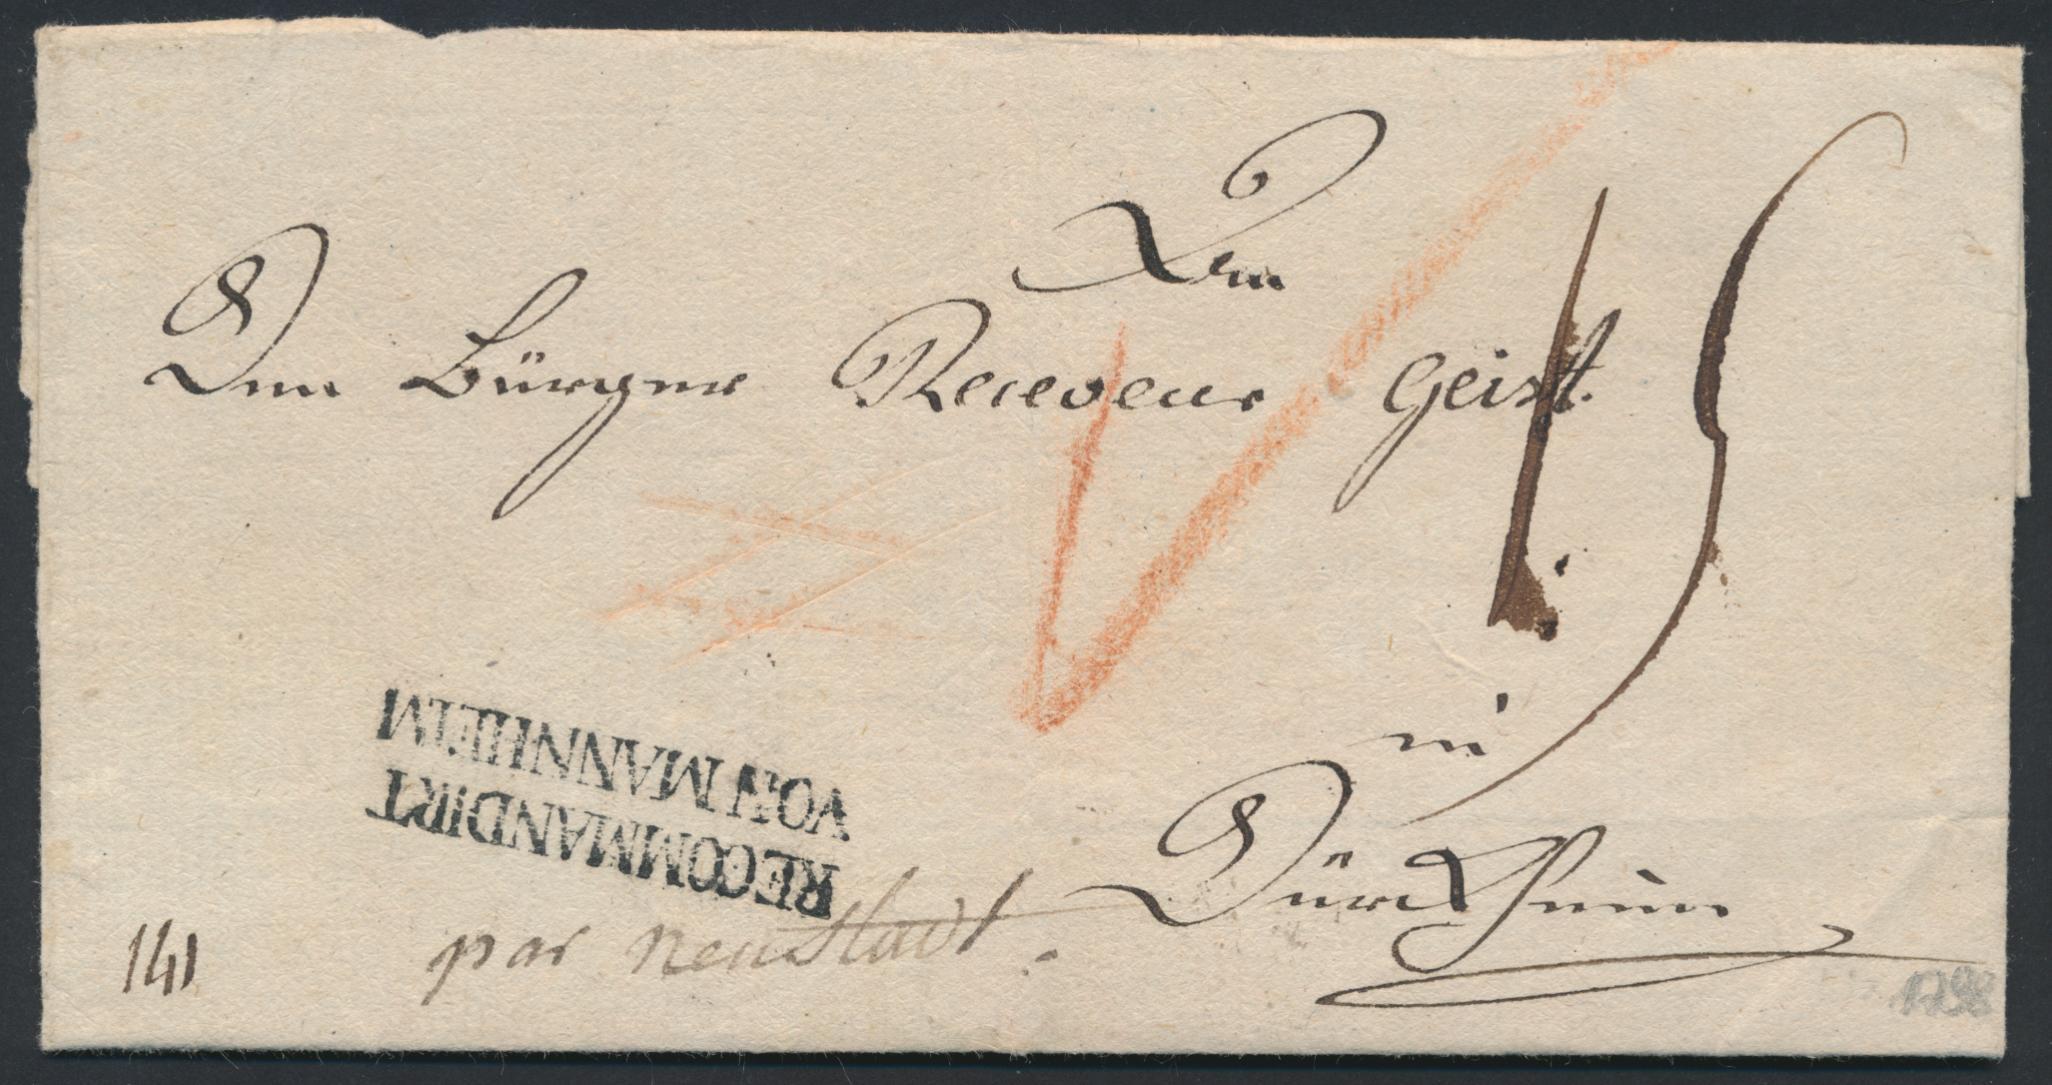 Dem
Dem Bürger Receveur Geist.
15
in
Dürckheim
VON MANNHEIM
RECOMMANDIRT
par neustadt.
141
1798